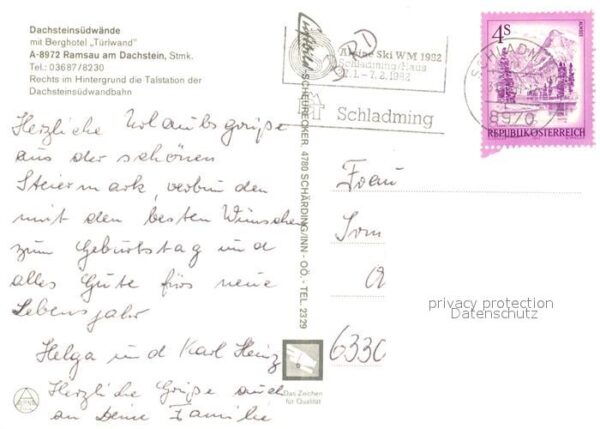 Dachsteinsüdwände
mit Berghotel „Türlwand"
A-8972 Ramsau am Dachstein, Stmk.
Tel.: 03687/8230
Rechts im Hintergrund die Talstation der
Dachsteinsüdwandbahn
Herzliche Urlaubsgrüße
aus der schönen
Steiermark, verbunden
mit den besten Wünschen
zum Geburtstag und
alles Gute fürs neue
Lebensjahr
Helga und Karl Heinz
Herzliche Grüße auch
an Deine Familie
Luftbild
SCHEURECKER, 4780 SCHÄRDING/INN - OÖ. - TEL. 2329
Alpine Ski WM 1982
Schladming/Haus
1. – 7.2.1982
Schladming
4S
REPUBLIK ÖSTERREICH
SCHLADMING
8970
Frau
Irm
633
privacy protection
Datenschutz
Das Zeichen
für Qualität